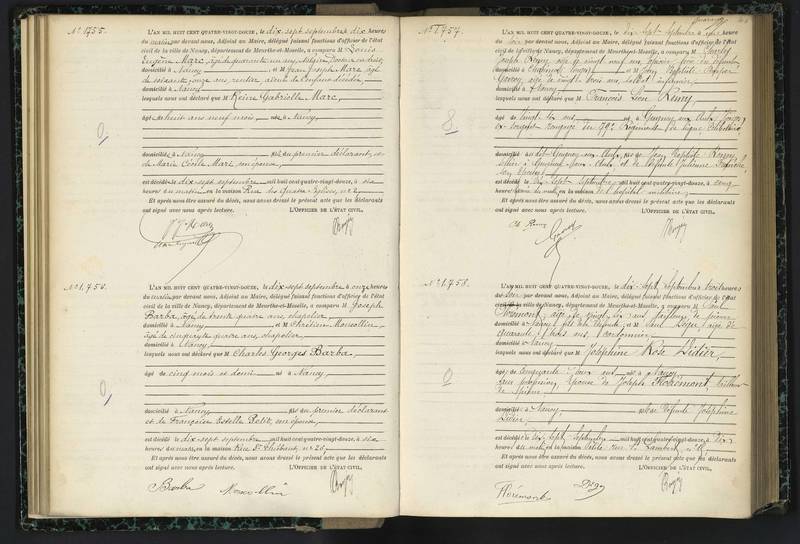 N° 1755.
L'AN MIL HUIT CENT QUATRE-VINGT-DOUZE, le dix-sept septembre à dix heures
du matin, par devant nous, Adjoint au Maire, délégué faisant fonctions d'officier de l'état
civil de la ville de Nancy, département de Meurthe-et-Moselle, a comparu M Louis
Eugène Marc, âgé de quarante un ans,
domicilié à Nancy et M Jean Joseph Marc âgé
de soixante ans rentier, aïeul de l'enfant décédée,
domicilié à Nancy
lesquels nous ont déclaré que M Reine Gabrielle Marc,
âgé de huit ans neuf mois, né à Nancy,
0
domicilié à Nancy fils du premier déclarant, et
de Marie Cécile Marc son épouse,
est décédé le dix-sept septembre mil huit cent quatre-vingt-douze, à six
heures du matin en la maison Rue des Quatre Eglises, n° 2,
Et après nous être assuré du décès, nous avons dressé le présent acte que les déclarants
ont signé avec nous après lecture. L'OFFICIER DE L'ÉTAT CIVIL.
N° 1.756.
L'AN MIL HUIT CENT QUATRE-VINGT-DOUZE, le dix-sept septembre à onze heures
du matin, par devant nous, Adjoint au Maire, délégué faisant fonctions d'officier de l'état
civil de la ville de Nancy, département de Meurthe-et-Moselle, a comparu M Joseph
Barba, âgé de trente quatre ans, chapelier,
domicilié à Nancy et M Chrétien
âgé de cinquante quatre ans, chapelier,
domicilié à Nancy
lesquels nous ont déclaré que M Charles Georges Barba,
âgé de cinq mois et demi né à Nancy,
0
domicilié à Nancy fils du premier déclarant
et de Françoise Estelle Petit, son épouse,
est décédé le dix-sept septembre mil huit cent quatre-vingt-douze, à six
heures du matin, en la maison Rue St Thiébaut, n° 26,
Et après nous être assuré du décès, nous avons dressé le présent acte que les déclarants
ont signé avec nous après lecture. L'OFFICIER DE L'ÉTAT CIVIL.
Barba
N° 1757.
L'AN MIL HUIT CENT QUATRE-VINGT-DOUZE, le dix-sept septembre à heures
du soir par devant nous, Adjoint au Maire, délégué faisant fonctions d'officier de l'état
civil de la ville de Nancy, département de Meurthe-et-Moselle, a comparu M Charles
Joseph Remy âgé de vingt neuf ans
domicilié à et M Jean Baptiste
âgé de vingt trois ans, soldat infirmier,
domicilié à Nancy
lesquels nous ont déclaré que M François Léon Remy,
âgé de vingt six ans, né à Gugney aux Aulx
Régiment de ligne, célibataire
8
domicilié à Gugney aux Aulx, fils de Jean Baptiste Remy,
son épouse,
est décédé le dix-sept septembre mil huit cent quatre-vingt-douze, à cinq
heures du matin en la maison de l'hôpital militaire,
Et après nous être assuré du décès, nous avons dressé le présent acte que les déclarants
ont signé avec nous après lecture. L'OFFICIER DE L'ÉTAT CIVIL.
Ch. Remy
N° 1.758.
L'AN MIL HUIT CENT QUATRE-VINGT-DOUZE, le dix-sept septembre à trois heures
du soir par devant nous, Adjoint au Maire, délégué faisant fonctions d'officier de l'état
civil de la ville de Nancy, département de Meurthe-et-Moselle, a comparu M Paul
Florémont, âgé de vingt ans, tailleur de pierre
domicilié à Nancy, fils de la défunte, et M Paul âgé de
quarante trois ans, cordonnier,
domicilié à Nancy
lesquels nous ont déclaré que M Joséphine Rose Didier,
âgé de cinquante deux ans né à Nancy
sans profession, épouse de Joseph Florémont, tailleur
de pierre
0
domicilié à Nancy fils de défunte Joséphine
Didier,
est décédé le dix-sept septembre mil huit cent quatre-vingt-douze, à dix
heures du matin, en la maison
Et après nous être assuré du décès, nous avons dressé le présent acte que les déclarants
ont signé avec nous après lecture. L'OFFICIER DE L'ÉTAT CIVIL.
Florémont